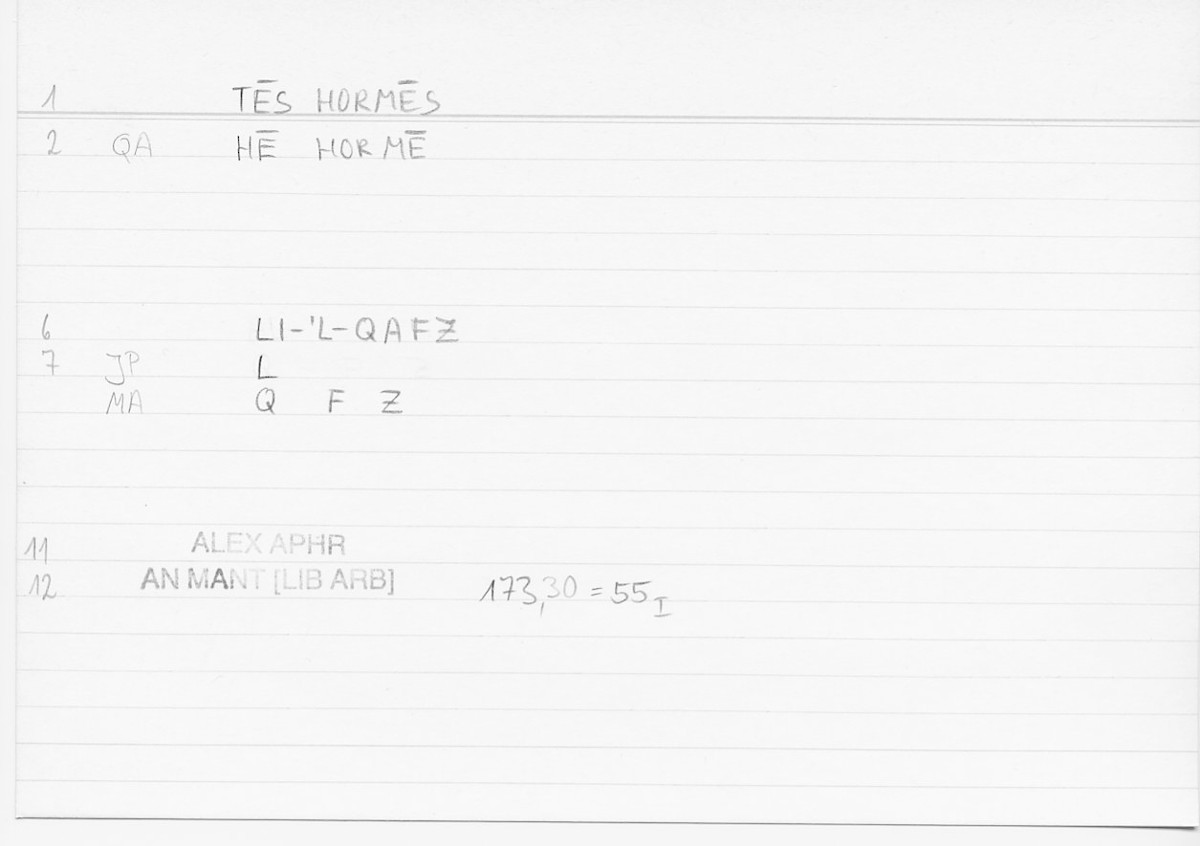 1 TĒS HORMĒS
2 QA HĒ HORMĒ
6 LI-'L-QAFZ
7 JP L
MA Q F Z
11 ALEX APHR
12 AN MANT [LIB ARB] 173,30 = 55 I